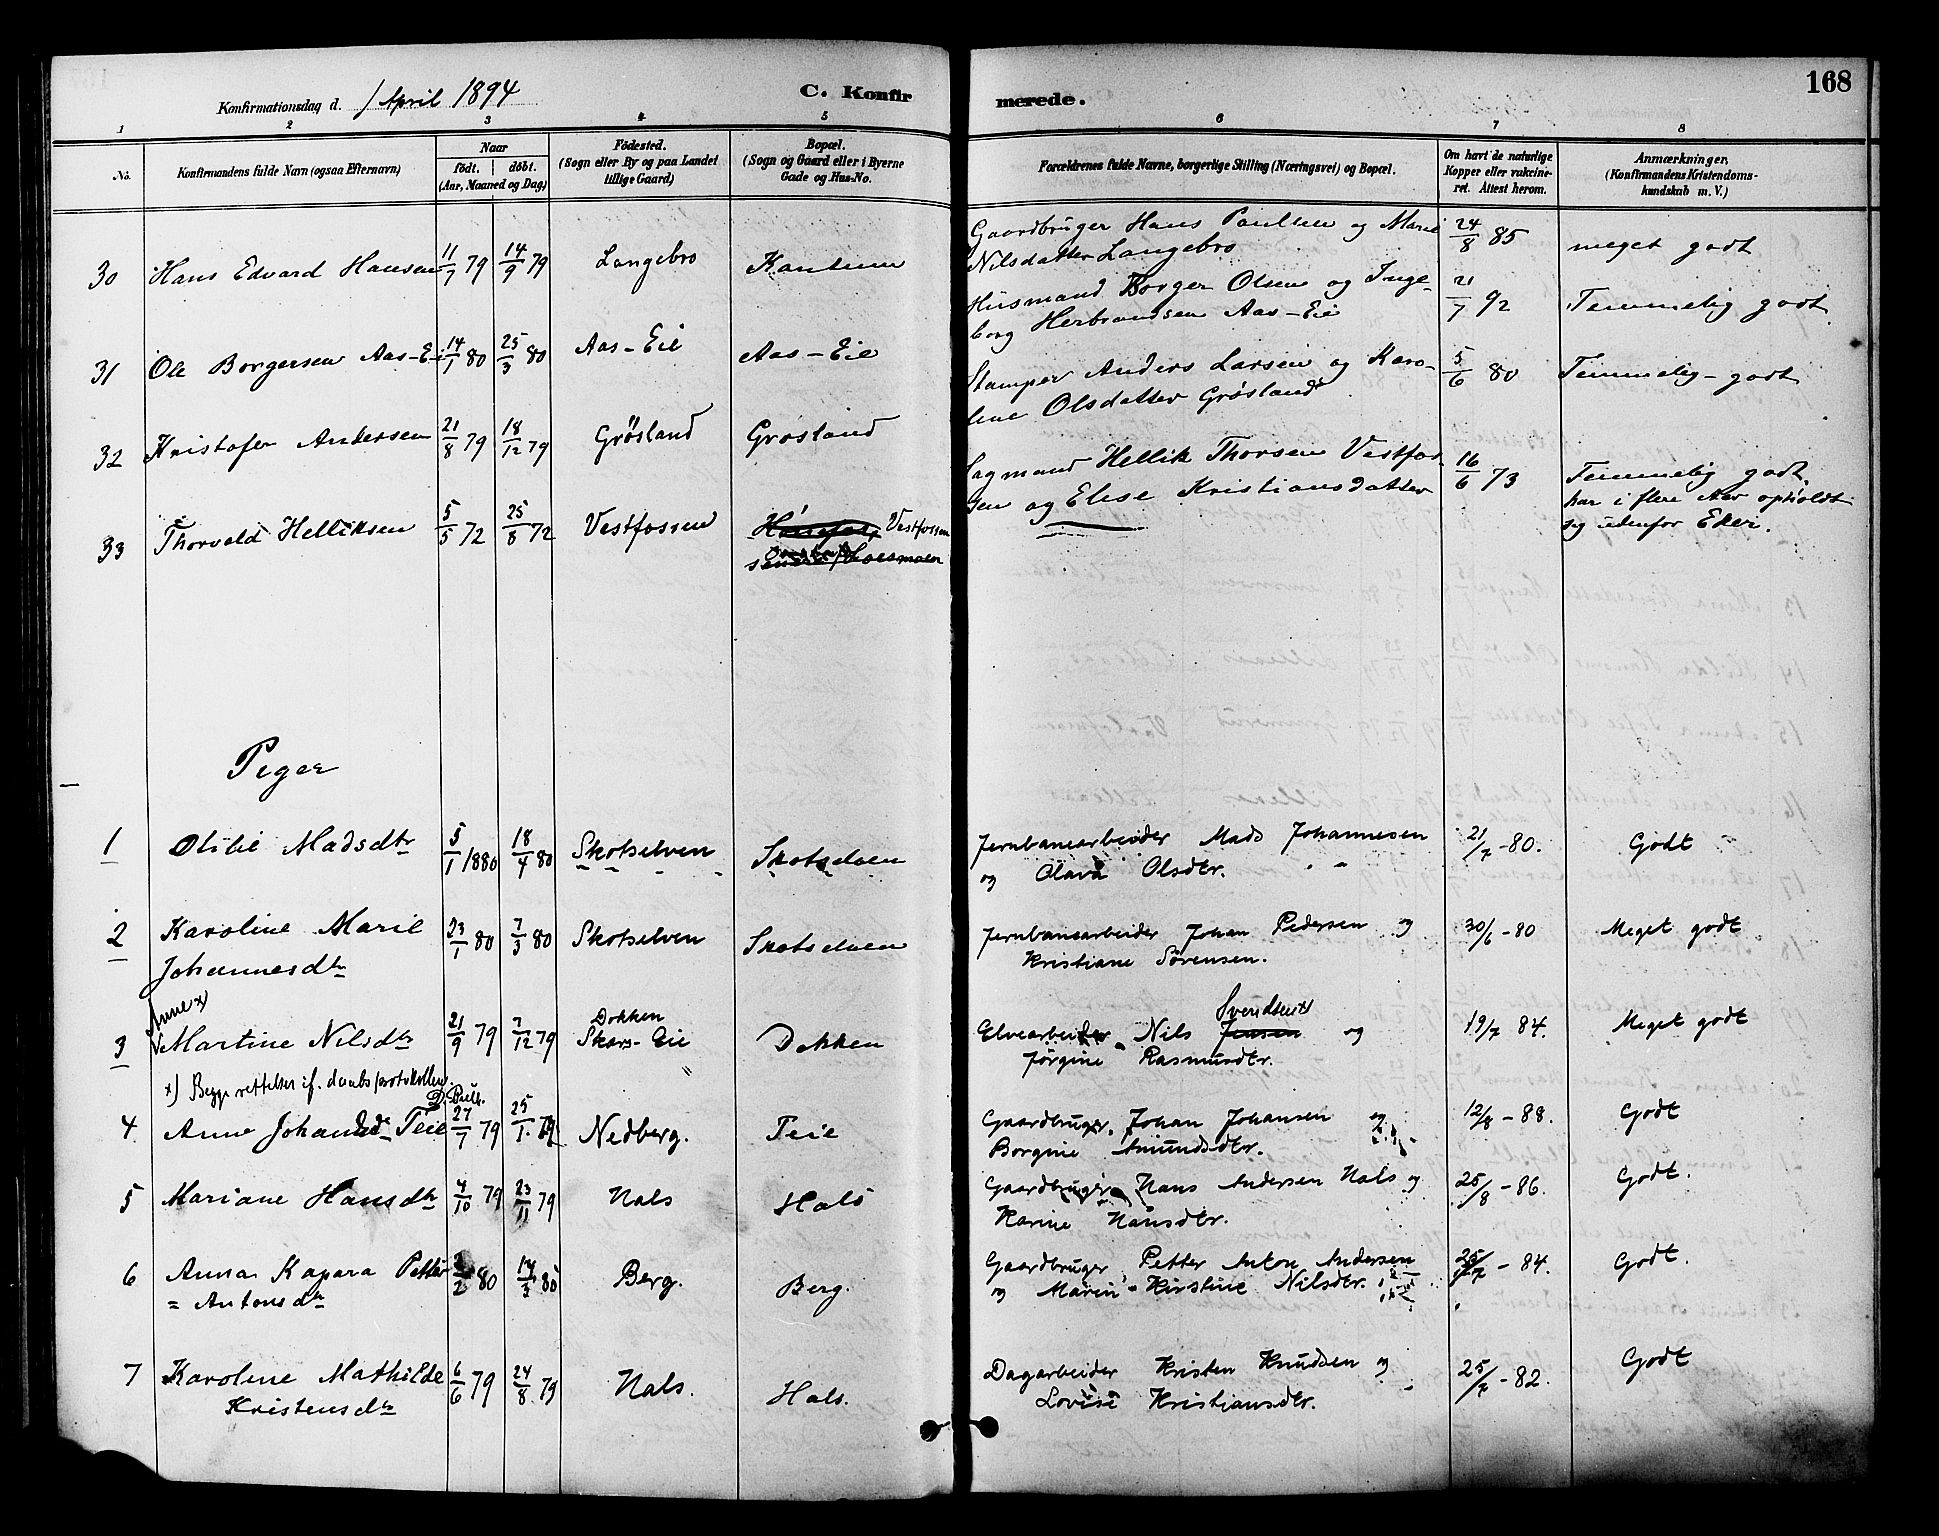 168
Konfirmationsdag d. 1 April 1894
C. Konfirmerede.
1 2 3 4 5 6 7 8
No.
Konfirmandens fulde Navn (ogsaa Efternavn)
Naar
født. døbt.
(Aar, Maaned og Dag)
Fødested.
(Sogn eller By og paa Landet
tillige Gaard)
Bopæl.
(Sogn og Gaard eller i Byerne
Gade og Hus-No.
Forældrenes fulde Navne, borgerlige Stilling (Næringsvei) og Bopæl.
Om havt de naturlige
Kopper eller vakcine-
ret. Attest herom.
Anmærkninger,
(Konfirmandens Kristendoms-
kundskab m. V.)
30 Hans Edvard Hansen 11/7 79 14/9 79 Langebro
Gaardbruger Hans Paulsen og Marie
Nilsdatter Langebro
24/8 85 meget godt
31 Ole Borgersen Aas-Eie 14/1 80 25/3 80 Aas-Eie Aas-Eie
Husmand Borger Olsen og Inge-
borg Herbrandsen Aas-Eie
21/7 92 Temmelig godt
32 Kristofer Andersen 21/8 79 18/12 79 Grøsland Grøsland
Stamper Anders Larsen og Karo-
line Olsdatter Grøsland
5/6 80 Temmelig-godt
33 Thorvald Helliksen 5/5 72 25/8 72 Vestfossen Hønefos, Vestfossen
Sagmand Hellik Thorsen Vestfos-
sen og Elise Kristiansdatter
16/6 73 Temmelig godt,
har i flere Aar opholdt
sig udenfor Eker.
Piger
1 Otilie Madsdtr 5/1 1880 18/4 80 Skotselven Skotselven
Jernbanearbeider Mads Johannesen
og Olava Olsdtr. " "
21/7-80. Godt
2 Karoline Marie
Johannesdtr 23/1 80 7/3 80 Skotselven Skotselven
Jernbanearbeider Johan Pedersen og
Kristiane Sørensen.
30/6-80 Meget godt
Anne x)
3 Martine Nilsdtr 21/9 79 7/12 79 Dokken
Skars-Eie Dokken
Svendsen x)
Elvearbeider Nils Jensen og
Jørgine Rasmusdtr.
19/7 84. Meget godt
x) Begge rettelser if. daabsprotokollen.
4. Anne Johansdtr Teie 27/7 79 25/1. 79 Nedberg. Teie
Gaardbruger Johan Johansen og
Borgine Amundsdtr.
12/8-88. Godt
5 Mariane Hansdtr 4/10 79 23/11 79 Hals Hals
Gaardbruger Hans Andersen Hals og
Karine Hansdtr.
25/8-86. Godt.
6 Anna Kapara Petter
= Antonsdtr 2/2 80 14/3 80 Berg. Berg.
Gaardbruger Petter Anton Andersen
og Marin Kirstine Nilsdtr.
25/7-84. Godt.
7 Karoline Mathilde
Kristensdtr 6/6 79 24/8. 79 Hals. Hals.
Dagarbeider Kristen Knudsen og
Lovise Kristiansdtr.
25/7-82. Godt